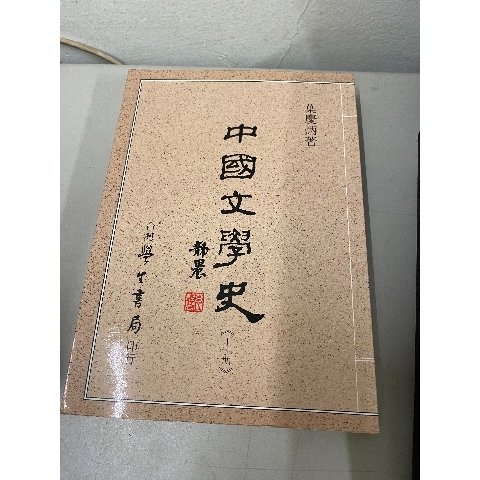 葉慶炳著
中國文學史
靜農
學生書局
印行